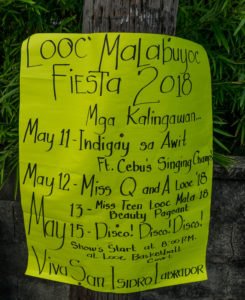 Looc Malabuyoc
Fiesta 2018
Mga Kalingawan...
May 11 - Indigay sa Awit
Ft. Cebu's Singing Champs
May 12 - Miss Q and A Looc '18
13 - Miss Teen Looc Mata 18
Beauty Pageant
May 15 - Disco! Disco! Disco!
Shows Start at 8:00 P.M.
at Looc Basketball
Court
Viva San Isidro Labrador